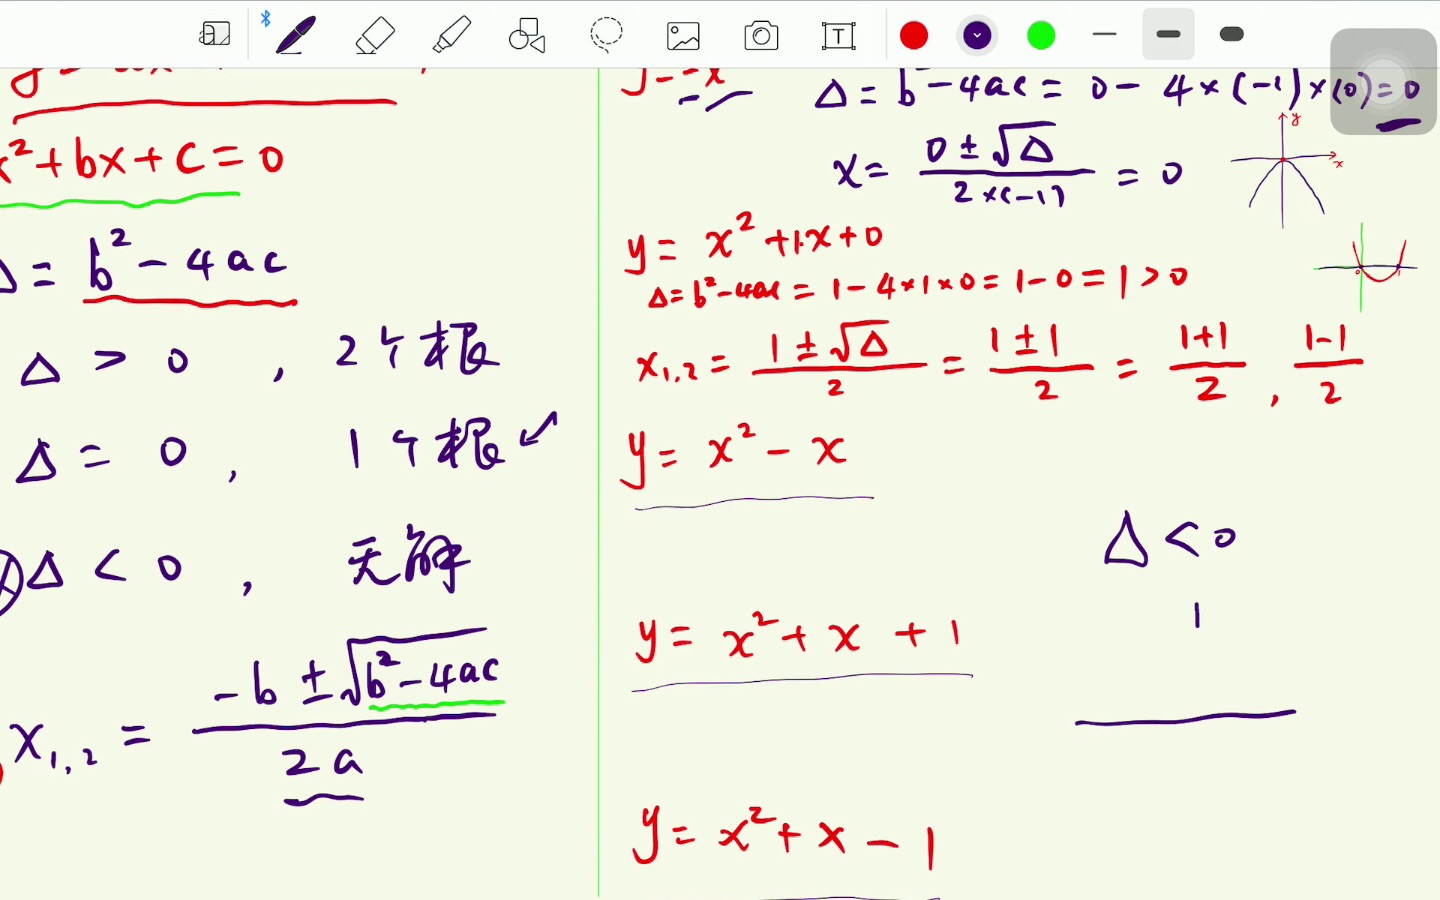 x²+bx+c=0
Δ= b²-4ac
Δ > 0 , 2个根
Δ = 0 , 1个根
Δ < 0 , 无解
x₁,₂ = (-b ± √(b²-4ac)) / 2a
Δ = b²-4ac = 0 - 4×(-1)×(0)=0
x= (0±√Δ) / (2×(-1)) = 0
y
x
y= x²+1·x+0
Δ=b²-4ac = 1-4×1×0=1-0=1>0
0
1
x₁,₂ = (1±√Δ)/2 = (1±1)/2 = (1+1)/2 , (1-1)/2
y= x²-x
Δ<0
1
y= x²+x+1
y= x²+x-1
T